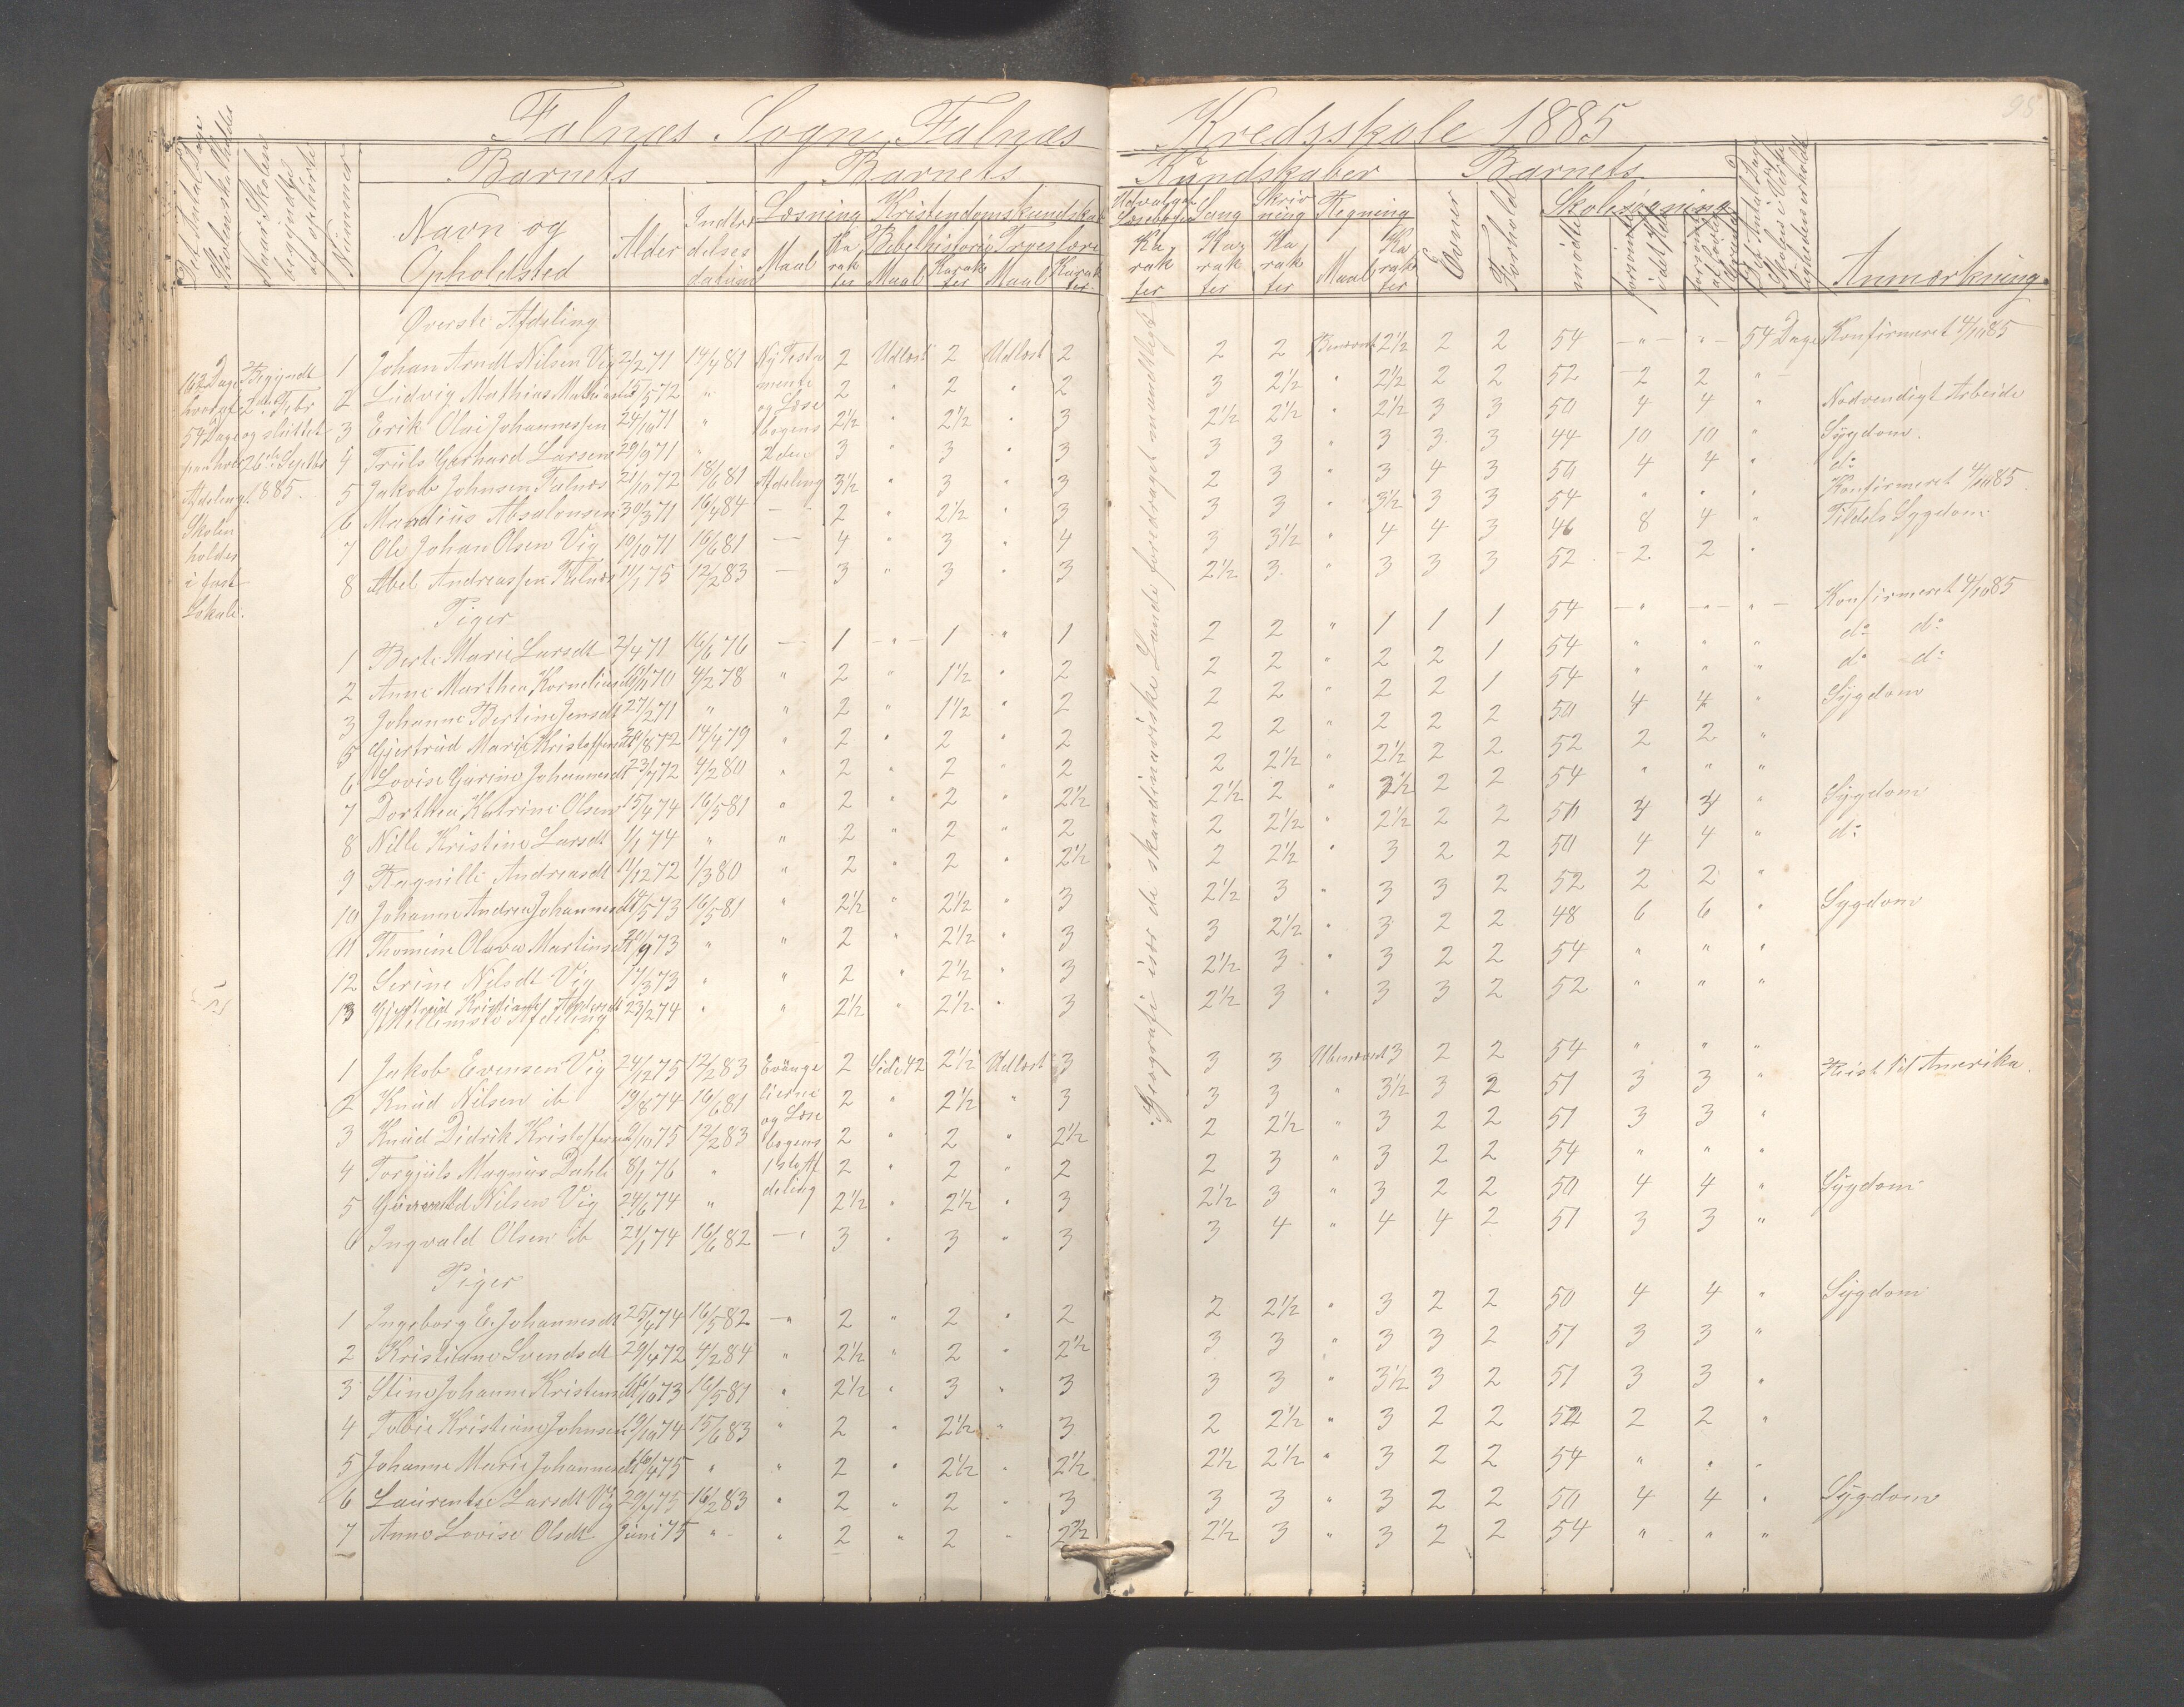 Falnæs Sogn Falnæs Kredsskole 1885
98
Det Antal Dage Skolen skal holdes
Naar Skolen begyndte og ophørte
Nummer
Barnets
Navn og Opholdsted
Alder
Indtrædelses datum
Barnets Kundskaber
Læsning
Maal
Karakter
Kristendomskundskab
Bibelhistorie
Maal
Karakter
Troeslære
Maal
Karakter
Udvalget Læsebogen
Karakter
Sang
Karakter
Skrivning
Karakter
Regning
Maal
Karakter
Barnets
Evner
Forhold
Skolesøgning
mødte
forsømte idet Hele
forsømte af lovlig Grund
Det Antal Dage Skolen i Virkeligheden er holdt
Anmærkning.
162 Dage hvoraf 54 Dage paa hver Afdeling. Skolen holdes i fast Lokale.
Begyndt 2den Febr og sluttet 26de Septbr 1885.
Geografi især de skandinaviske Lande foredraget mundtligt
Øverste Afdeling
1 Johan Arndt Nilsen Vig 2/2 71 14/4 81 Ny Testamente og Læsebogens 2den Afdeling 2 Udlæst 2 Udlæst 2 2 2 Benævnt 2½ 2 2 54 - " - " - 54 Dage Konfirmeret 4/10 85
2 Ludvig Mathias Mathiasen 15/5 72 " 2 " 2 " 2 3 2½ " 2½ 2 2 52 2 2 "
3 Erik Olai Johannessen 24/10 71 " 2½ " 2½ " 3 2½ 2½ " 2½ 3 3 50 4 4 " Nødvendigt Arbeide
4 Truls Gerhard Larsen 29/9 71 " 3 " 3 " 3 3 3 " 3 3 3 44 10 10 " Sygdom.
5 Jakob Johnsen Falnæs 21/10 72 18/6 81 3½ " 3 " 3 2 3 " 3 4 3 50 4 4 " do
6 Mandius Absalonsen 30/3 71 16/4 84 - 2 " 2½ " 3 3 3 " 3½ 3 3 54 " " " Konfirmeret 4/10 85
7 Ole Johan Olsen Vig 10/10 71 16/6 81 - 4 " 3 " 4 3 3½ " 4 4 3 46 8 4 " Tildels Sygdom
8 Abel Andreassen Falnæs 11/1 75 12/2 83 - 3 " 3 " 3 2½ 3 " 3 3 3 52 2 2 "
Piger
1 Berte Marie Larsdt 2/4 71 16/6 76 - 1 " 1 " 1 2 2 " 1 1 1 54 - " - " - " - Konfirmeret 4/10 85
2 Anne Marthea Korneliusdt 10/11 70 4/2 78 " 2 " 1½ " 2 2 2 " 2 2 1 54 " " " do do
3 Johanne Bertine Jensdt 27/2 71 " " 2 " 1½ " 2 2 2 " 2 2 1 54 " " " do do
5 Gjertrud Marie Kristoffersdt 30/8 72 14/4 79 " 2 " 2 " 2 2 2 " 2 2 2 50 4 4 " Sygdom
6 Lovise Gurine Johannesdt 23/7 72 4/2 80 " 2 " 2 " 2 2 2½ " 2½ 2 2 52 2 2 "
7 Dorthea Katrine Olsen 15/4 74 16/5 81 " 2 " 2 " 2½ 2½ 2 " 2½ 2 2 54 " " "
8 Nille Kristine Larsdt 1/1 74 " " 2 " 2 " 2 2 2½ " 2½ 2 2 51 3 3 " Sygdom
9 Ragnille Andreasdt 11/12 72 1/3 80 " 2 " 2 " 2½ 2 2½ " 3 2 2 50 4 4 " do
10 Johanne Andrea Johannesdt 14/5 73 16/5 81 " 2½ " 2½ " 3 2½ 3 " 3 3 2 52 2 2 "
11 Thomine Olava Martinsdt 21/9 73 " " 2 " 2½ " 3 3 2½ " 3 2 2 48 6 6 " Sygdom
12 Serine Nilsdt Vig 17/3 73 " " 2 " 2½ " 3 2½ 3 " 3 2 2 54 " " "
13 Gjertrud Kristiane Aadnesdt 23/2 74 " " 2½ " 2½ " 3 2½ 3 " 3 3 2 52 " " "
Mellemste Afdeling
1 Jakob Evensen Vig 24/12 75 12/2 83 Evangelierne og Læsebogens 1ste Afdeling 2 Side 42 2½ Udlæst 3 3 3 Ubenævnt 3 2 2 54 " " "
2 Knud Nilsen ib 19/8 74 16/6 81 2 " 2½ " 3 3 3 " 3½ 3 2 51 3 3 " Reist til Amerika.
3 Knud Didrik Kristoffersen 9/10 75 12/2 83 2 " 2 " 2½ 2 2½ " 3 2 2 51 3 3 "
4 Torgjuls Magnus Dahle 8/1 76 " 2 " 2 " 2 2 3 " 3 2 2 54 " " "
5 Gunvald Nilsen Vig 24/6 74 " 2½ " 2½ " 3 2½ 3 " 3 2 2 50 4 4 " Sygdom
6 Ingvald Olsen ib 21/1 74 16/6 82 - " 3 " 3 " 3 3 4 " 4 4 2 51 3 3 "
Piger
1 Ingeborg E. Johannesdt 25/4 74 16/5 82 - " 2 " 2 " 2 2 2½ " 3 2 2 50 4 4 " Sygdom
2 Kristiane Svendsdt 29/4 72 4/2 84 " 2½ " 2 " 2½ 3 3 " 3 3 2 51 3 3 "
3 Stine Johanne Kristensdt 16/10 73 16/5 81 " 2½ " 3 " 3 3 3 " 3½ 3 2 51 3 3 "
4 Tobie Kristiane Johnsen 19/10 74 15/6 83 " 2 " 2½ " 3 2 2½ " 3 2 2 52 2 2 "
5 Johanne Marie Johannesdt 16/4 75 " " 2 " 2½ " 2½ 2½ 2½ " 3 2 2 54 " " "
6 Laurentse Larsdt Vig 29/7 75 16/2 83 " 2 " 2 " 3 3 3 " 3 2 2 50 4 4 " Sygdom
7 Anne Lovise Olsdt Juni 75 " " 2 " 2 " 2½ 2½ 3 " 3 2 2 54 " " "